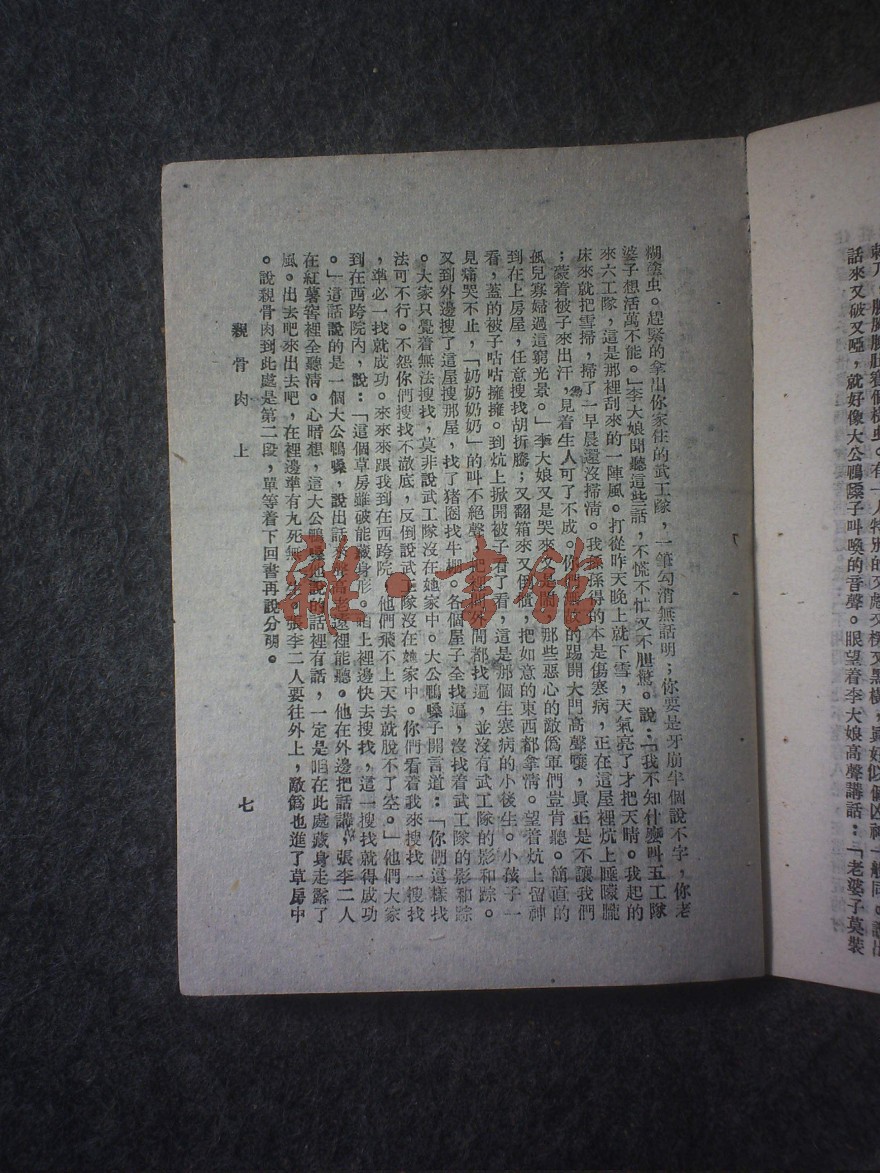 話來又破又啞，就好像大公鴨嗓子叫喚的音聲。眼望着李大娘高聲講話：「老婆子莫裝
糊塗虫。趕緊的拿出你家住的武工隊，一筆勾消無話明；你要是牙崩半個說不字，你老
婆子想活萬不能。」李大娘聞聽這些話，不慌不忙又不胆驚。說：「我不知什麽叫五工隊
來六工隊，這是那裡刮來的一陣風。打從昨天晚上就下雪，天氣亮了才把天晴。我起的
床來就把雪掃，掃了一早晨還沒掃清。我孫孫得的本是傷寒病，正在這屋裡炕上睡矇矓
；蒙着被子來出汗，見着生人可了不成。你們的踢開大門高聲嚷，眞正是不讓我們
孤兒寡婦過這窮光景。」李大娘又是哭來又是鬧，那些惡心的敵僞軍們豈肯聽。簡直的
到在上房屋，任意搜找胡折騰；又翻箱來又倒櫃，把如意的東西都拿淸。望着炕上留神
看，蓋的被子咕咕擁擁。到炕上掀開被子看了看，這是那個生寒病的小後生。小孩子一
見痛哭不止，「奶奶奶奶」的叫不絕聲。把裡間外間都找遍，並沒有武工隊的影和踪。
又到外邊搜了這屋搜那屋，找了猪圈找牛棚。各個屋子全找遍，沒找着武工隊的影和踪
。大家只覺着無法搜找，莫非說武工隊沒在她家中。大公鴨嗓子開言道：「你們這樣找
法可不行。不怨你們搜找不澈底，反倒說武工隊沒在她家中。你們看着我來搜找一搜找
，準必一找就成功。來來來跟我到在西跨院，他們飛不上天去就脫不了空。」他們大家
到在西跨院內，說：「這個草房雖破能藏身形。咱上裡邊快去搜找，這一搜找就得成功
。」這話說的是一個大公鴨嗓，說出話來聲高老遠裡能聽。他在外邊把話講，張李二人
在紅薯窖裡全聽淸。心暗想，這大公鴨嗓他說的話裡有話，一定是咱在此處藏身走露了
風。出去吧來出去吧，在裡邊準有九死無一生。張李二人要往外上，敵僞也進了草房中
。說親骨肉到此處是第二段，單等着下回書再說分明。
親骨肉上
七
雜·書館